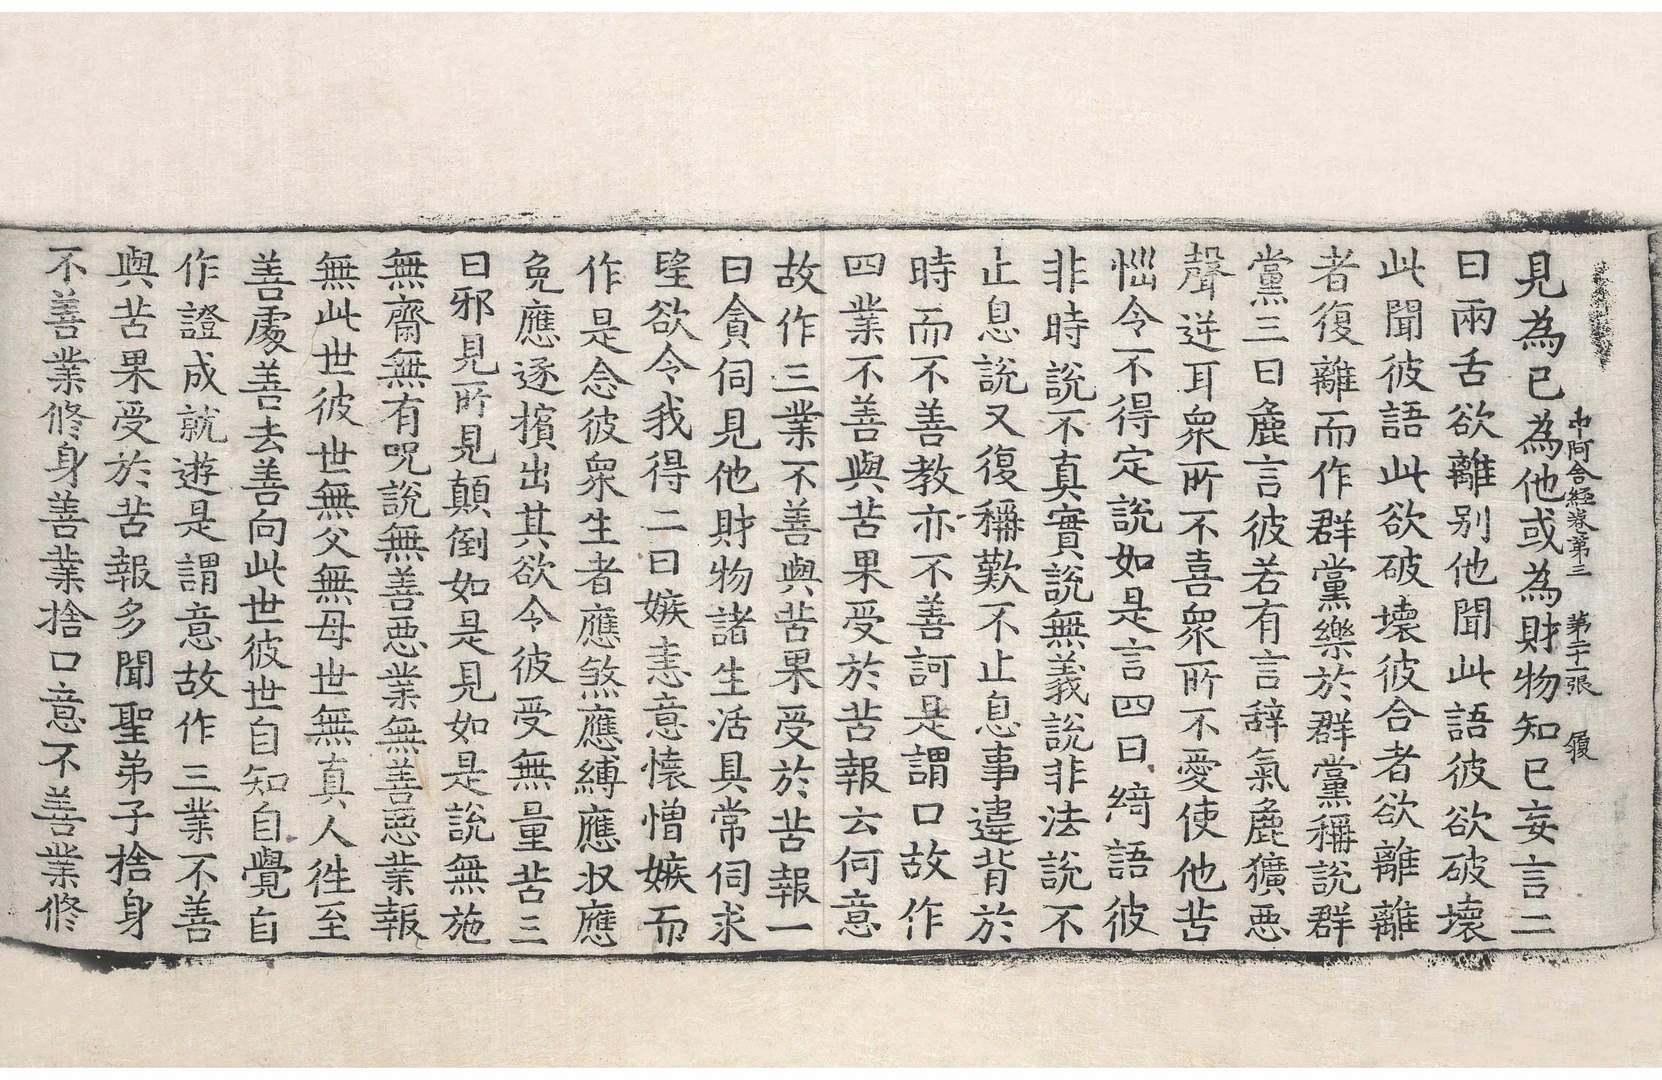 中阿含經卷第三 第二十一張 履
見為已為他或為財物知已妄言二
曰兩舌欲離別他聞此語彼欲破壞
此聞彼語此欲破壞彼合者欲離離
者復離而作群黨樂於群黨稱說群
黨三曰麁言彼若有言辞氣麁獷惡
聲逆耳衆所不喜衆所不愛使他苦
惱令不得定說如是言四曰綺語彼
非時說不真實說無義說非法說不
止息說又復稱歎不止息事違背於
時而不善教亦不善訶是謂口故作
四業不善與苦果受於苦報云何意
故作三業不善與苦果受於苦報一
曰貪伺見他財物諸生活具常伺求
望欲令我得二曰嫉恚意懷憎嫉而
作是念彼衆生者應煞應縛應収應
免應逐擯出其欲令彼受無量苦三
曰邪見所見顛倒如是見如是說無施
無齋無有呪說無善惡業無善惡業報
無此世彼世無父無母世無真人徃至
善處善去善向此世彼世自知自覺自
作證成就遊是謂意故作三業不善
與苦果受於苦報多聞聖弟子捨身
不善業修身善業捨口意不善業修